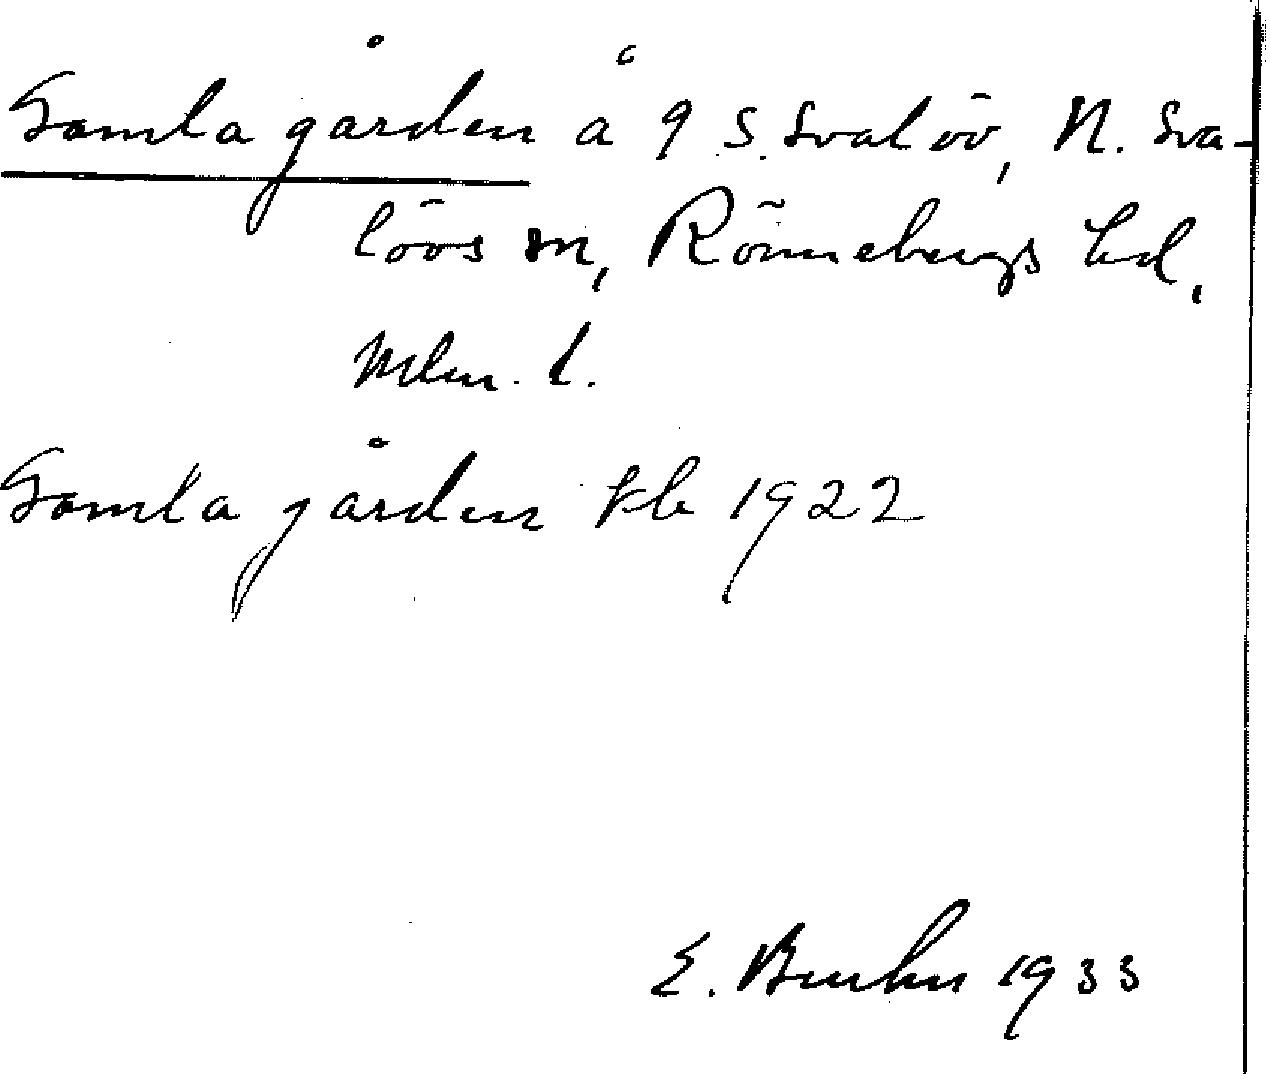 Gamla gården å 9 S. Svalöv, N. Sva-
lövs sn, Rönnebergs hd,
Mlm. l.
Gamla gården kb 1922
E. Bruhn 1933